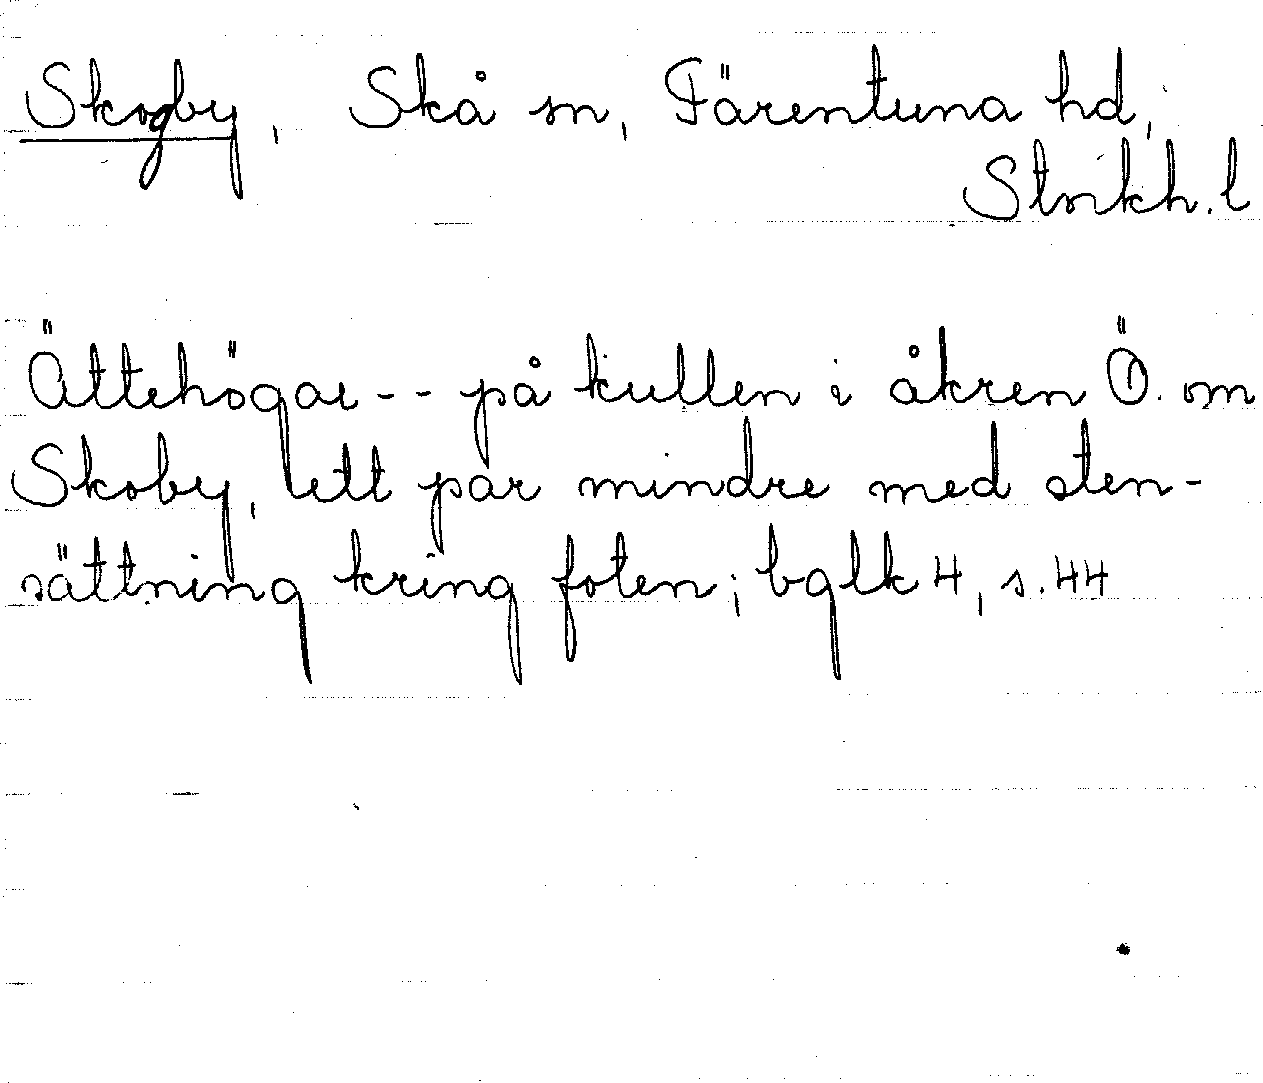 Skogby, Skå sn, Färentuna hd,
Stokh. l
Ättehögar -- på kullen i åkren Ö. om
Skoby, ett par mindre med sten-
sättning kring foten; bglk 4, s. 44